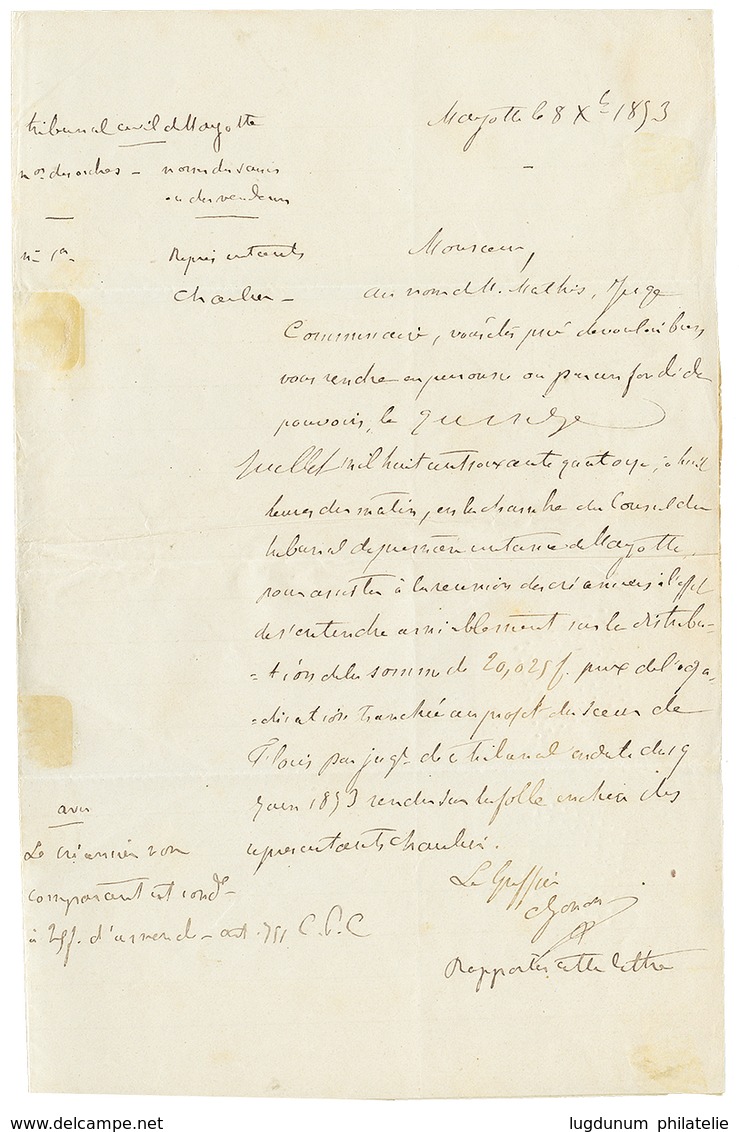 tribunal civil de Mayotte
Mayotte le 8 Xbre 1853
nos des ordres - noms des saisis
ou des vendeurs
n° 1er
Représentants
Charlier -
Monsieur,
Au nom de M. Mathis, Juge
Commissaire, vous êtes prié de vouloir bien
vous rendre en personne ou par un fondé de
pouvoirs, le quinze
Juillet mil huit cent soixante quatorze, à huit
heures du matin, en la chambre du Conseil du
tribunal de première instance de Mayotte,
pour assister à la réunion des créanciers à l'effet
de s'entendre amiablement sur la distribu-
=tion de la somme de 20,025 f. prix de l'adju-
=dication tranchée au profit du sieur de
par jugt de ce tribunal en date du 9
1853 rendu sur la folle enchère des
représentants Charlier.
avis
Le créancier non
comparant est condé
à 25 f. d'amende - art. 751 C. P. C
Le Greffier
Rapporter cette lettre
www.delcampe.net
lugdunum philatelie